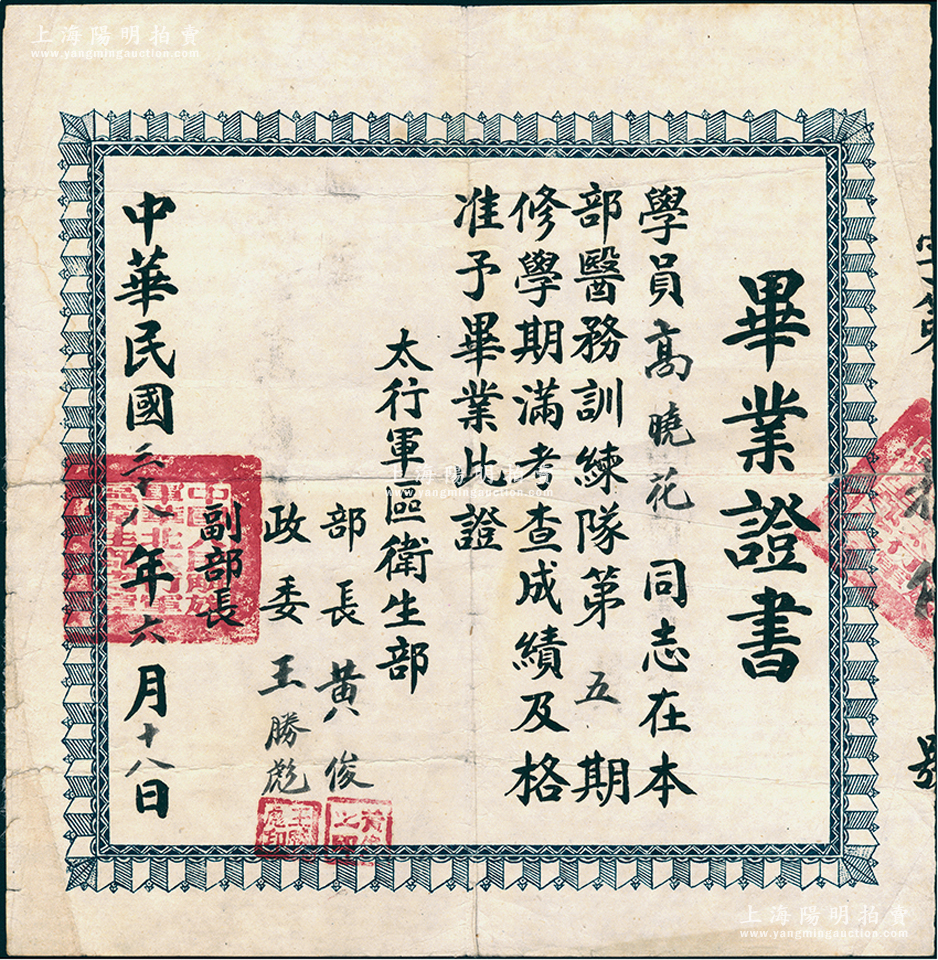 畢業證書
學員高曉花同志在本
部醫務訓練隊第五期
修學期滿考查成績及格
准予畢業此證
太行軍區衛生部
部長黃俊
政委王勝彪
副部長
中華民國三十八年六月十八日
號
上海陽明拍賣
www.yangmingauction.com
上海陽明拍賣
www.yangmingauction.com
上海陽明拍賣
www.yangmingauction.com